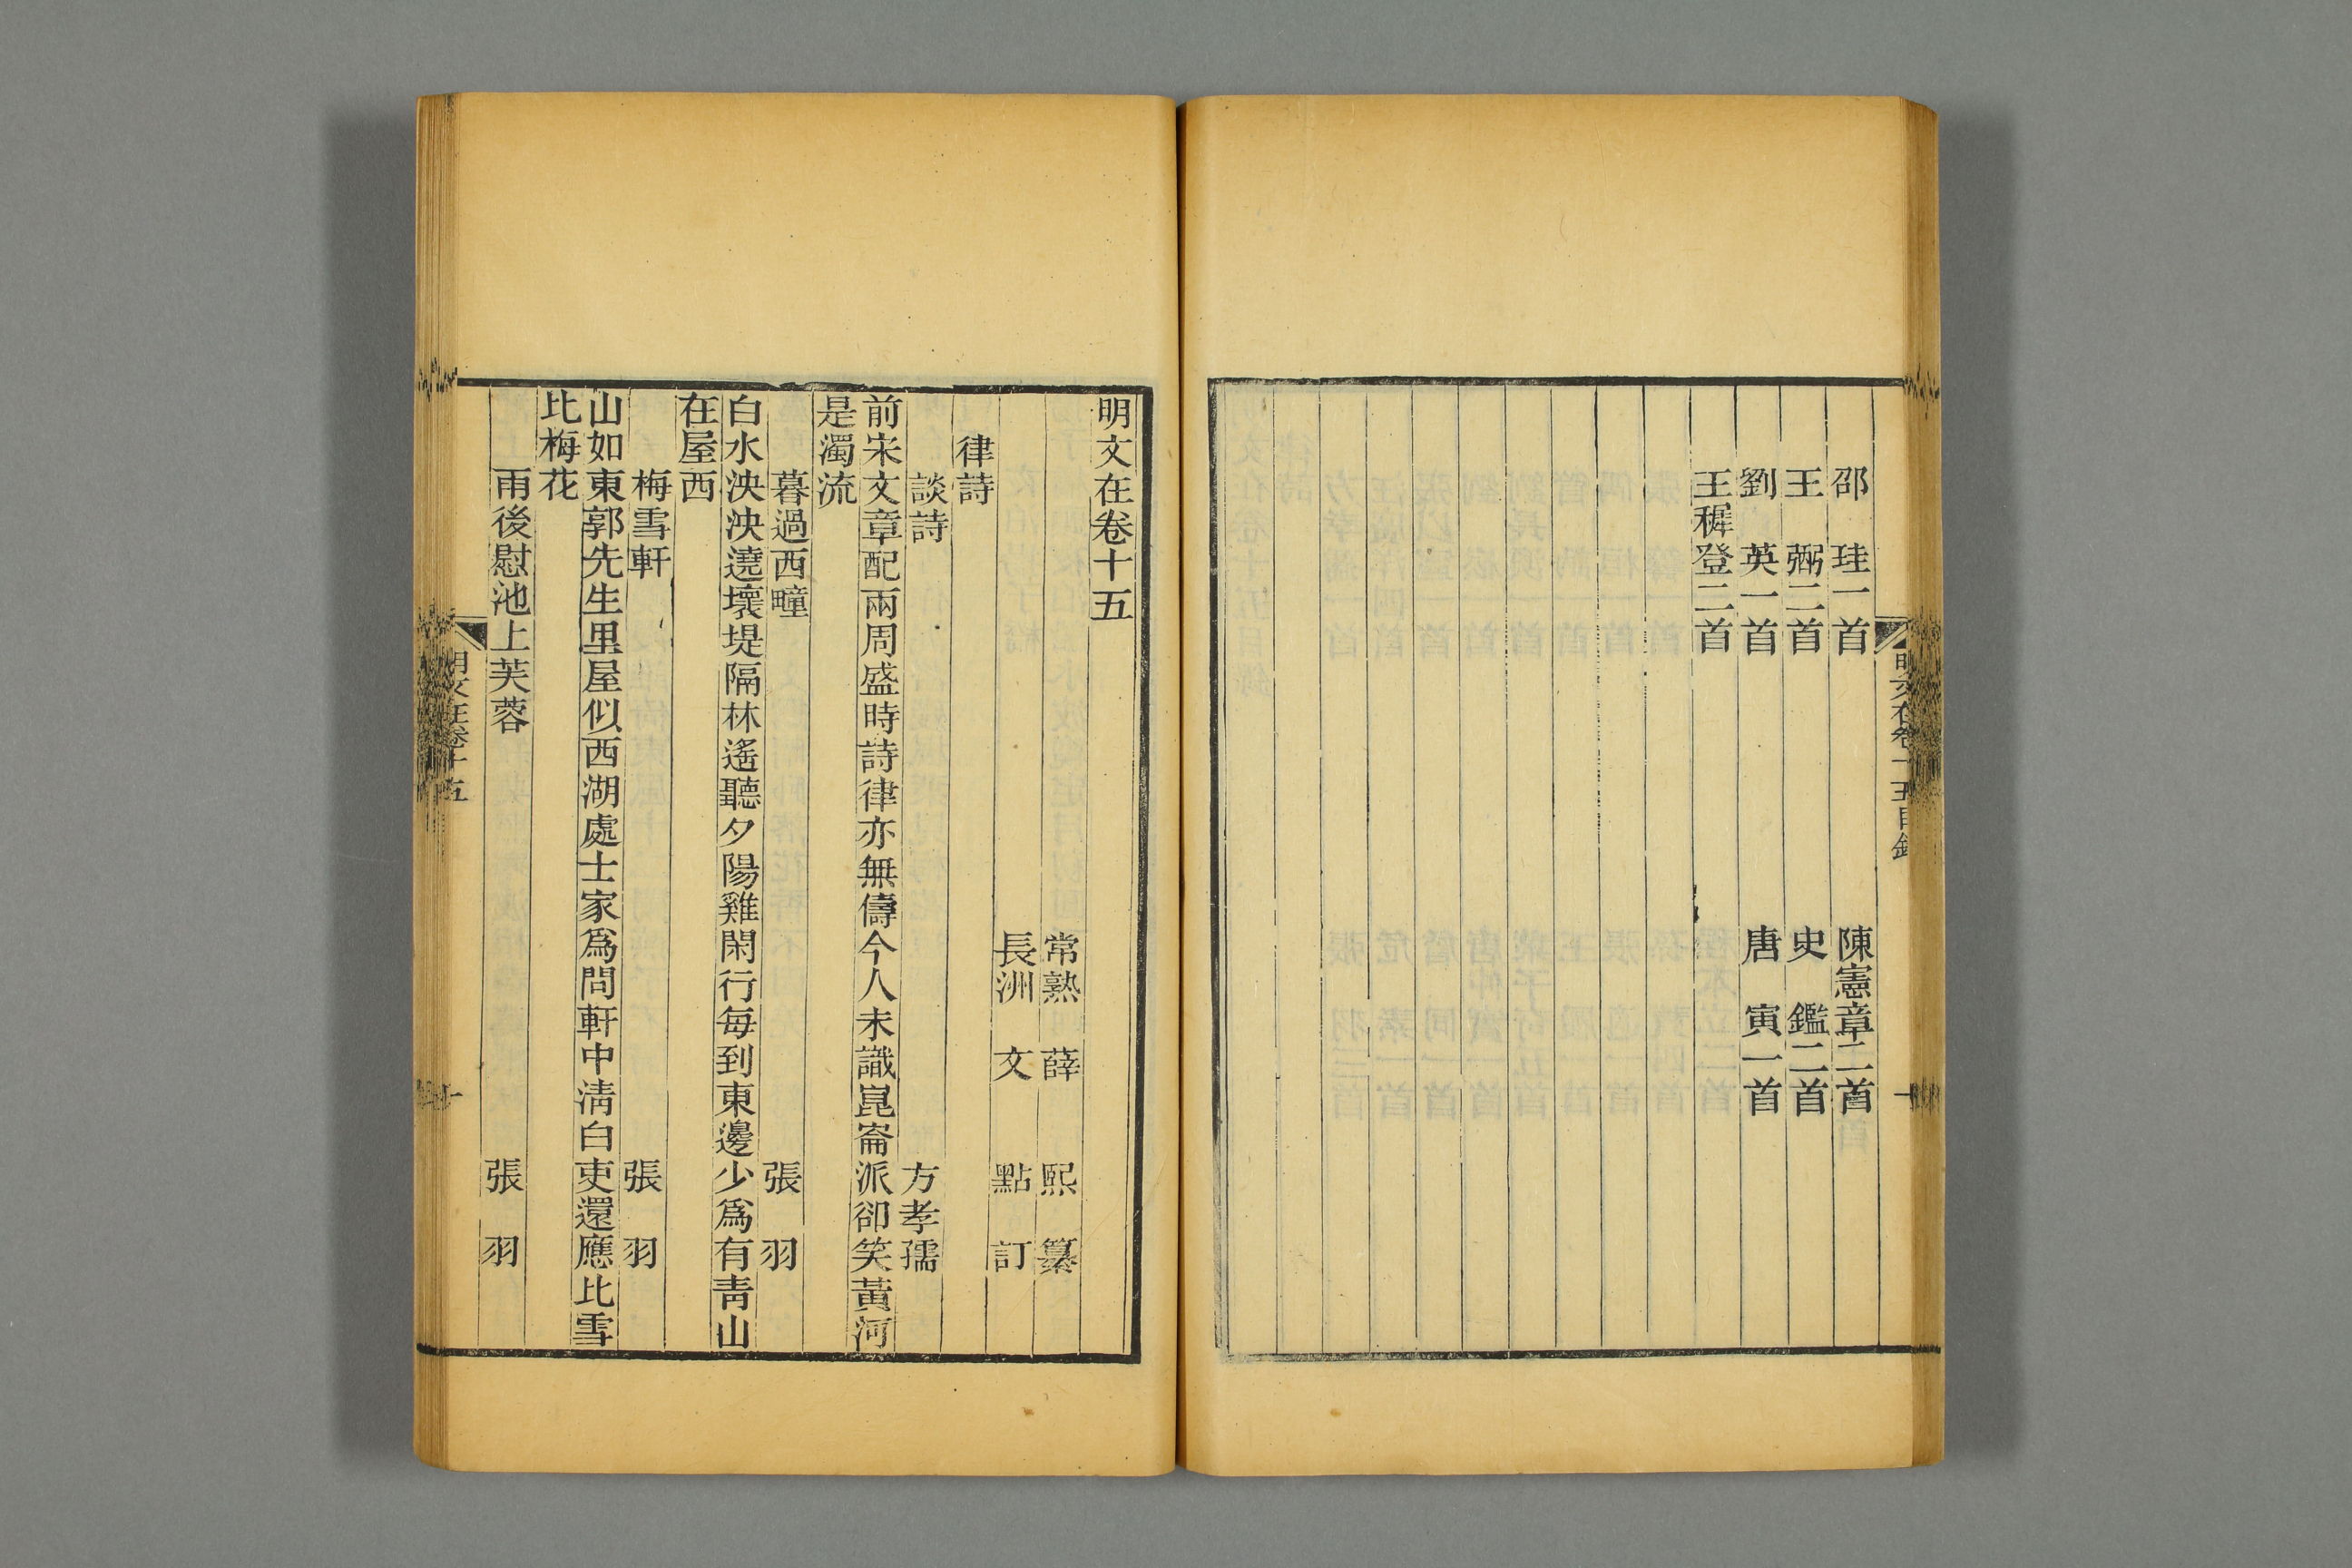 明文在卷十五目錄
邵　珪一首　陳憲章二首
王　弼二首　史　鑑二首
劉　英一首　唐　寅一首
王穉登二首
明文在卷十五
常熟　薛　熙　纂
長洲　文　點　訂
律詩
談詩　方孝孺
前宋文章配兩周盛時詩律亦無儔今人未識崑崙派卻笑黃河
是濁流
暮過西疃　張　羽
白水泱泱遶壞堤隔林遙聽夕陽雞閑行每到東邊少爲有靑山
在屋西
梅雪軒　張　羽
山如東郭先生里屋似西湖處士家爲問軒中淸白吏還應比雪
比梅花
雨後慰池上芙蓉　張　羽
明文在卷十五